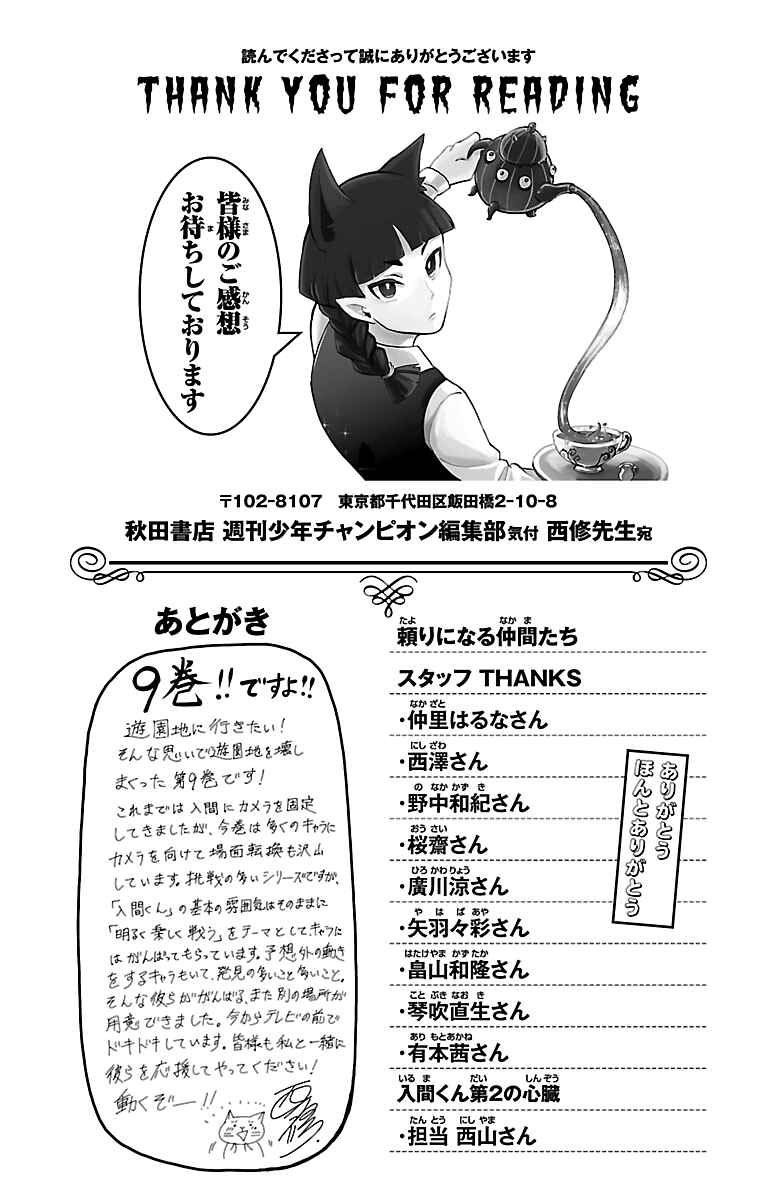 読んでくださって誠にありがとうございます
THANK YOU FOR READING
皆様のご感想
お待ちしております
〒102-8107　東京都千代田区飯田橋2-10-8
秋田書店 週刊少年チャンピオン編集部気付 西修先生宛
あとがき
9巻!!ですよ!!
遊園地に行きたい!
そんな思いで遊園地を壊し
まくった 第9巻です!
これまでは入間にカメラを固定
してきましたが、今巻は多くのキャラに
カメラを向けて場面転換も沢山
しています。挑戦の多いシリーズですが、
「入間くん」の基本の雰囲気はそのままに
「明るく楽しく戦う」をテーマとしてキャラに
はがんばってもらっています。予想外の動き
をするキャラもいて、発見の多いこと多いこと。
そんな彼らががんばる、また別の場所が
用意できました。今からテレビの前で
ドキドキしています。皆様も私と一緒に
彼らを応援してやってください!
動くぞー!!
西修
頼りになる仲間たち
スタッフ THANKS
・仲里はるなさん
・西澤さん
・野中和紀さん
・桜齋さん
・廣川涼さん
・矢羽々彩さん
・畠山和隆さん
・琴吹直生さん
・有本茜さん
入間くん第2の心臓
・担当 西山さん
ありがとう
ほんとありがとう